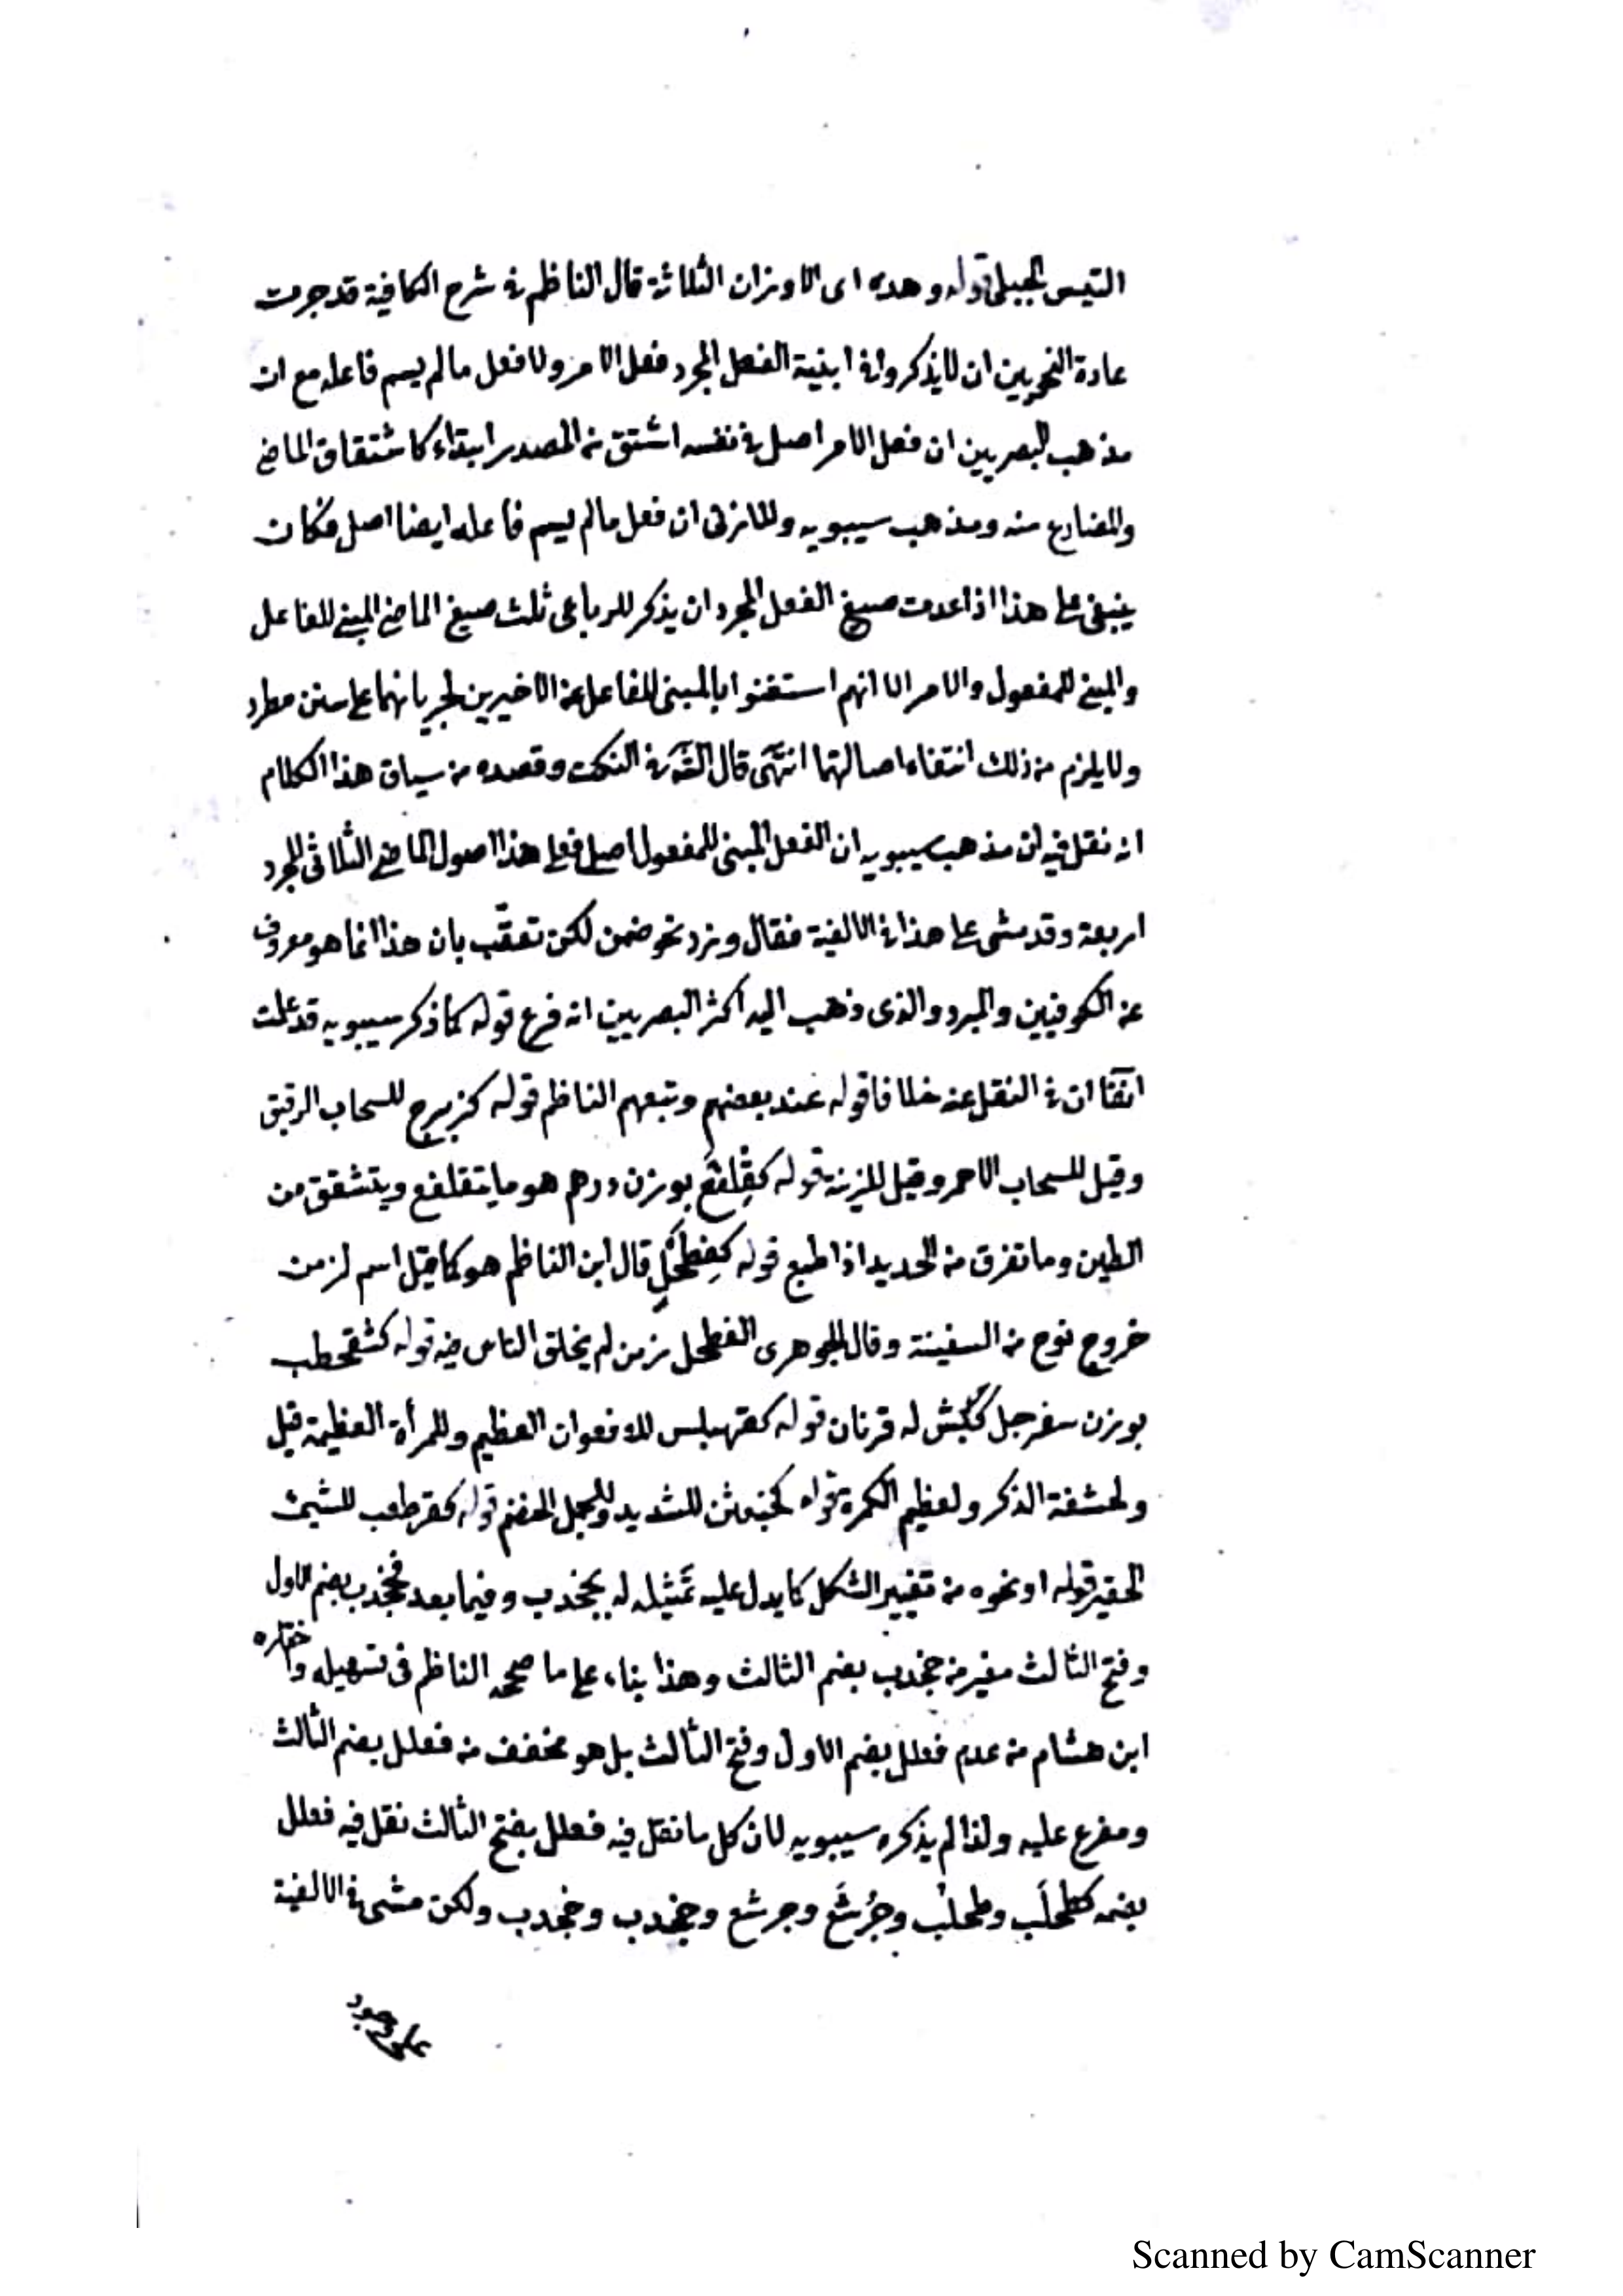 التيس الجبلى قوله وهذه اى الاوزان الثلاثة قال الناظم فى شرح الكافية قد جرت
عادة النحويين ان لا يذكروا فى ابنية الفعل المجرد فعل الامر ولا فعل ما لم يسم فاعله مع ان
مذهب البصريين ان فعل الامر اصل فى نفسه اشتق من المصدر ابتداء كاشتقاق الماضى
والمضارع منه ومذهب سيبويه والمازنى ان فعل ما لم يسم فاعله ايضا اصل فكان
ينبغى على هذا اذا عدت صيغ الفعل المجرد ان يذكر للرباعى ثلث صيغ الماضى المبنى للفاعل
والمبنى للمفعول والامر الا انهم استغنوا بالمبنى للفاعل عن الاخيرين لجريانهما على سنن مطرد
ولا يلزم من ذلك انتفاء اصالتهما انتهى قال الش فى النكت وقصده من سياق هذا الكلام
انه نقل فيه ان مذهب سيبويه ان الفعل المبنى للمفعول اصل فعلى هذا اصول الماضى الثلاثى المجرد
اربعة وقد مشى على هذا فى الالفية فقال وزد نحو ضمن لكن تعقّب بان هذا انما هو معروف
عن الكوفيين والمبرد والذى ذهب اليه اكثر البصريين انه فرع قوله كما ذكر سيبويه قد علمت
آنفا ان فى النقل عنه خلافا قوله عند بعضهم وتبعهم الناظم قوله كزبرج للسحاب الرقيق
وقيل للسحاب الاحمر وقيل للزينة قوله كقِلْفَع بوزن درهم هو ما يتقلفع ويتشقق من
الطين وما تفرق من الحديد اذا طبع قوله كفِطَحْلٍ قال ابن الناظم هو كما قيل اسم لزمن
خروج نوح من السفينة وقال الجوهرى الفطحل زمن لم يخلق الناس فيه قوله كشقحطب
بوزن سفرجل ككبش له قرنان قوله كقهبلس للافعوان العظيم وللمرأة العظيمة قيل
ولحشفة الذكر ولعظيم الكمرة قوله كخبعثن للشديد وللجمل الضخم قوله كقرطعب للشيئ
الحقير قوله او نحوه من تغيير الشكل كما يدل عليه تمثيله له بجخدب وفيما بعد فجخدب بضم الاول
وفتح الثالث مغير من جخدب بضم الثالث وهذا بناء على ما صححه الناظم فى تسهيله واختاره
ابن هشام من عدم فعلل بضم الاول وفتح الثالث بل هو مخفف من فعلل بضم الثالث
ومفرع عليه ولذا لم يذكره سيبويه لان كل ما نقل فيه فعلل بفتح الثالث نقل فيه فعلل
بضمه كطحلَب وطحلُب وجُرْشَع وجرشع وجخدب وجخدب ولكن مشى فى الالفية
على وجود
Scanned by CamScanner